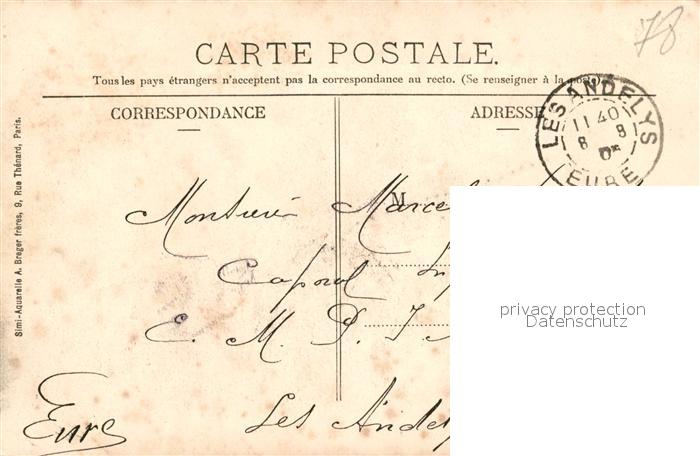 78
CARTE POSTALE.
Tous les pays étrangers n'acceptent pas la correspondance au recto. (Se renseigner à la poste)
CORRESPONDANCE
ADRESSE
LES ANDELYS
11 40
8 8
EURE
M
Monsieur Marcel
Caporal
E. M. P. I.
Les Andel
Eure
Simi-Aquarelle A. Breger frères, 9, Rue Thénard, Paris.
privacy protection
Datenschutz